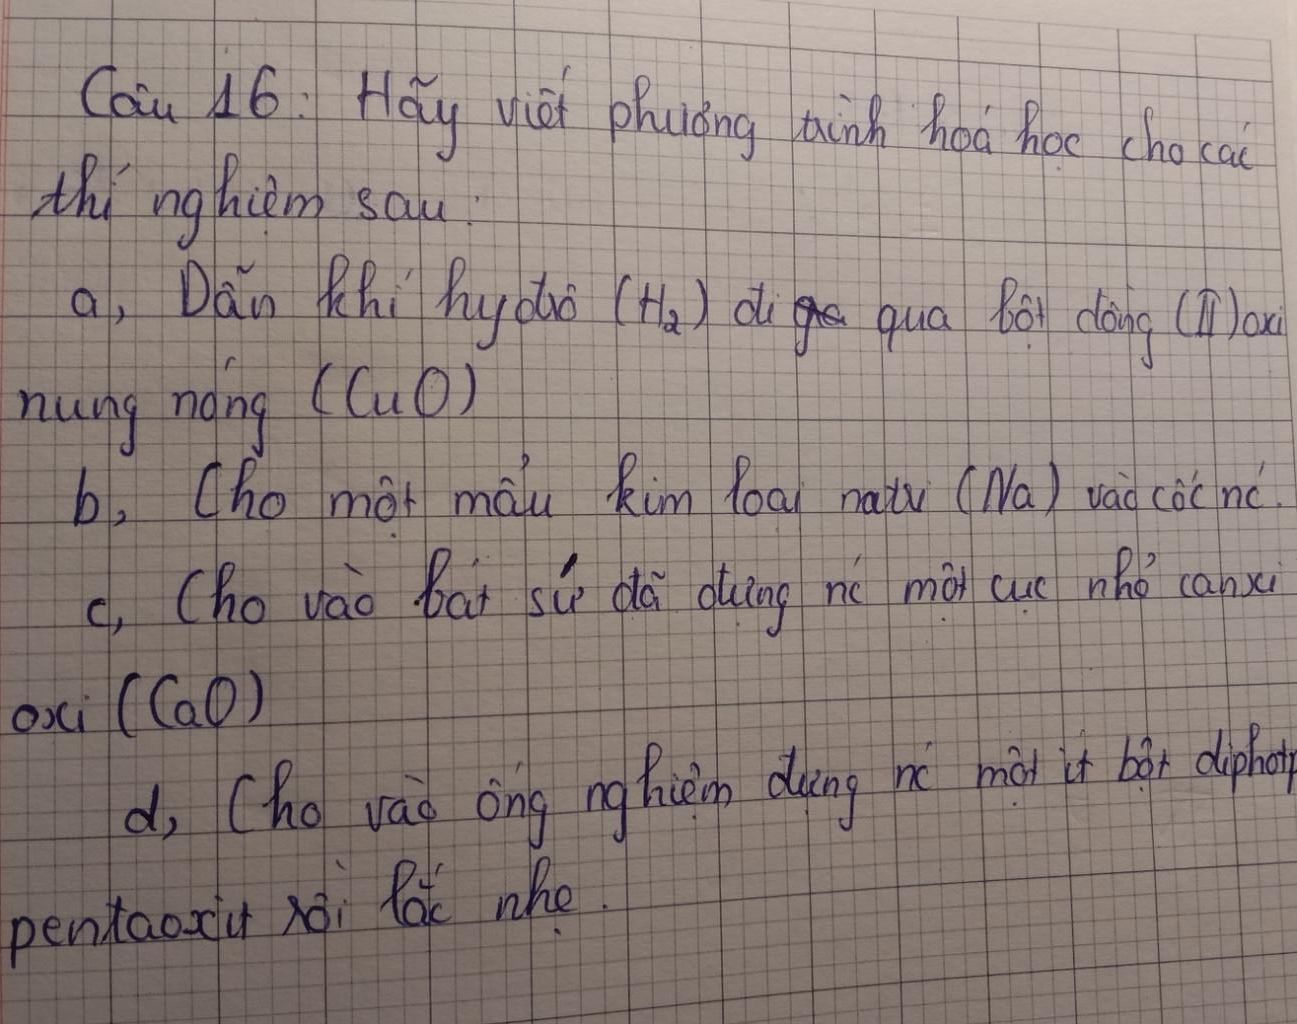 Câu 16: Hãy viết phương trình hoá học cho các
thí nghiệm sau:
a, Dẫn khí hydrô (H₂) đi qua bột đồng (II) oxi
nung nóng (CuO)
b, Cho một mẩu kim loại natri (Na) vào cốc nc.
c, Cho vào bát sứ đã đựng nc một cục nhỏ canxi
oxi (CaO)
d, Cho vào ống nghiệm đựng nc một ít bột diphotp
pentaoxit rồi lắc nhẹ.